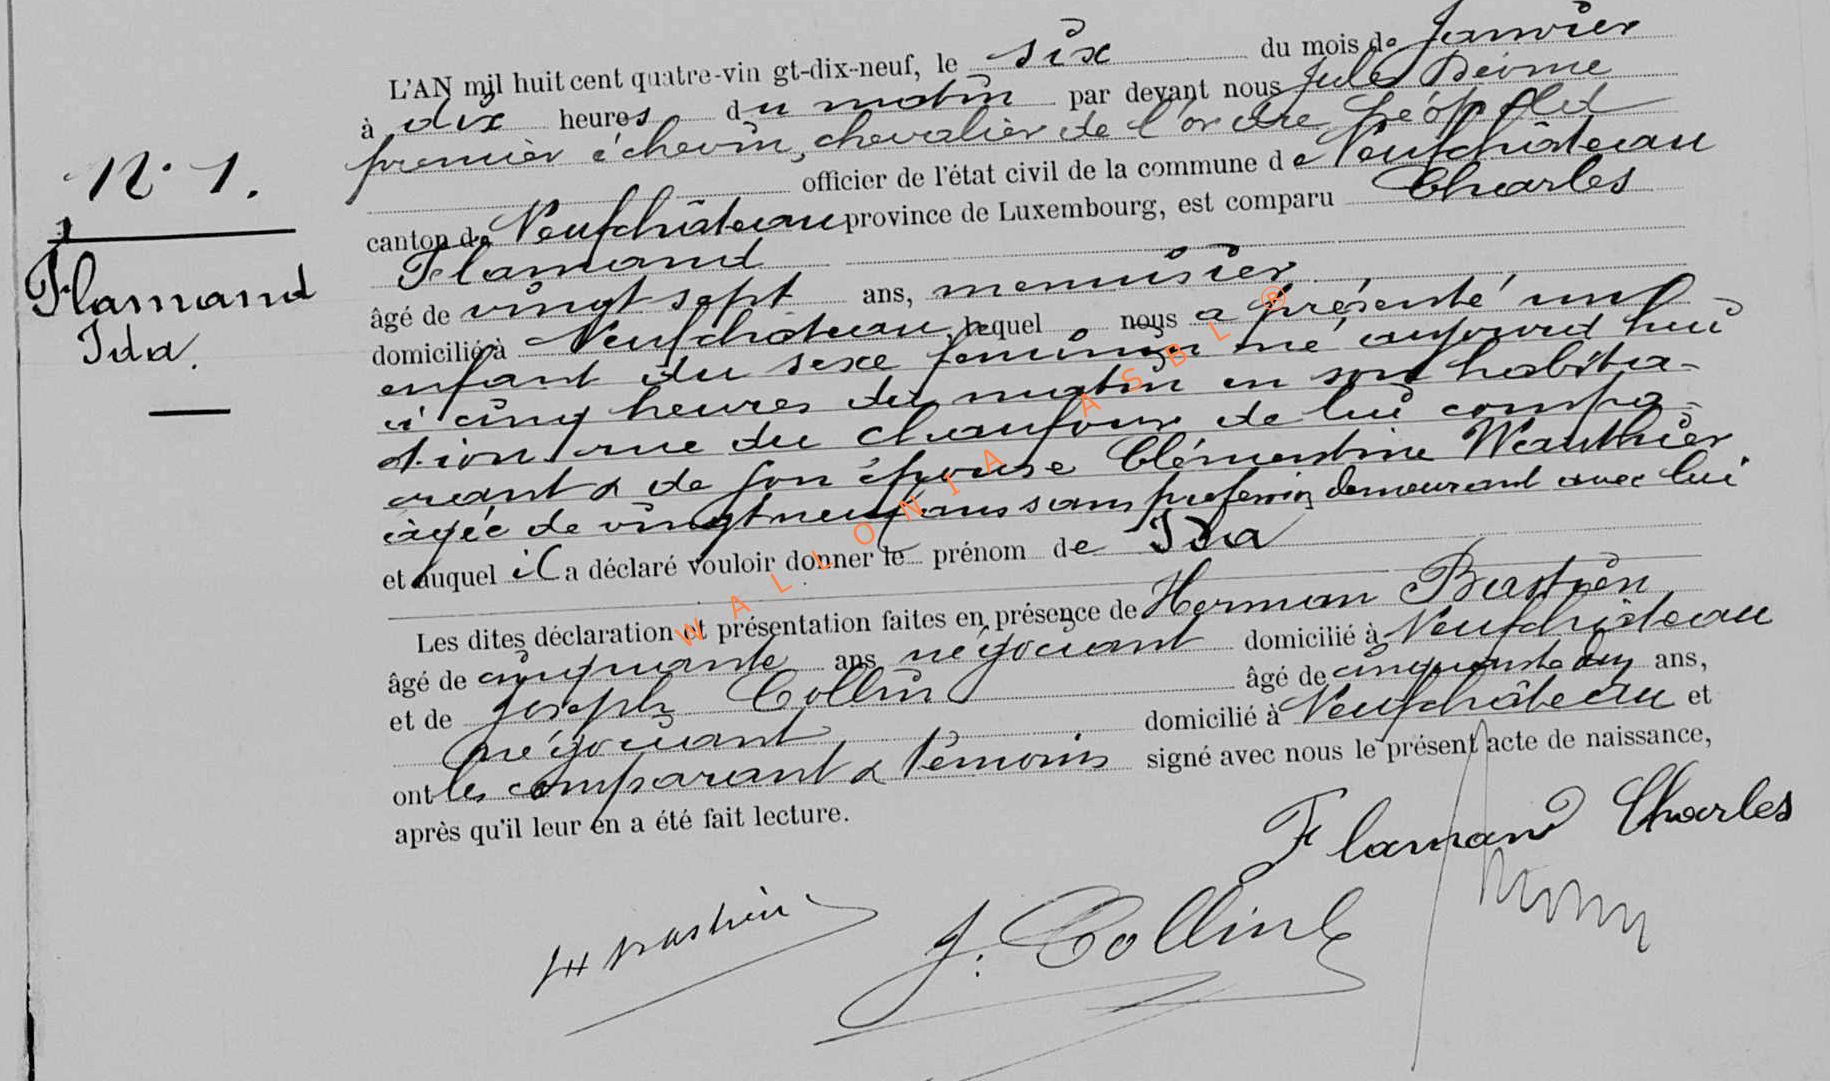 N° 1.
Flamand
Ida.
L'AN mil huit cent quatre-vin gt-dix-neuf, le six du mois de Janvier
à dix heures du matin par devant nous Jules
premier échevin, chevalier de l'ordre Léopold
officier de l'état civil de la commune de Neufchâteau
canton de Neufchâteau province de Luxembourg, est comparu Charles
Flamand
âgé de vingt sept ans, menuisier
domicilié à Neufchâteau, lequel nous a présenté un
enfant du sexe féminin né aujourd'hui
à cinq heures du matin en son habita-
tion rue du Chaufour de lui compa-
rant & de son épouse Clémentine Wauthier
âgée de vingt neuf ans sans profession demeurant avec lui
et auquel il a déclaré vouloir donner le prénom de Ida
Les dites déclaration et présentation faites en présence de Herman Bastien
âgé de cinquante ans négociant domicilié à Neufchâteau
et de Joseph Collin âgé de cinquante ans,
négociant domicilié à Neufchâteau et
ont les comparant & témoins signé avec nous le présent acte de naissance,
après qu'il leur en a été fait lecture.
Flamand Charles
H Bastien
J. Collin
WALLONIA ASBL ®